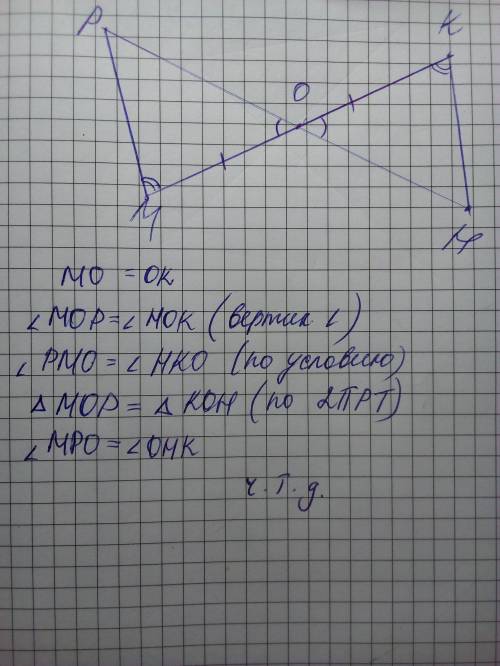 P
K
O
M
H
MO = OK
∠MOP = ∠HOK (вертик ∠)
∠PMO = ∠HKO (по условию)
△MOP = △KOH (по 2ПРТ)
∠MPO = ∠OHK
ч.т.д.